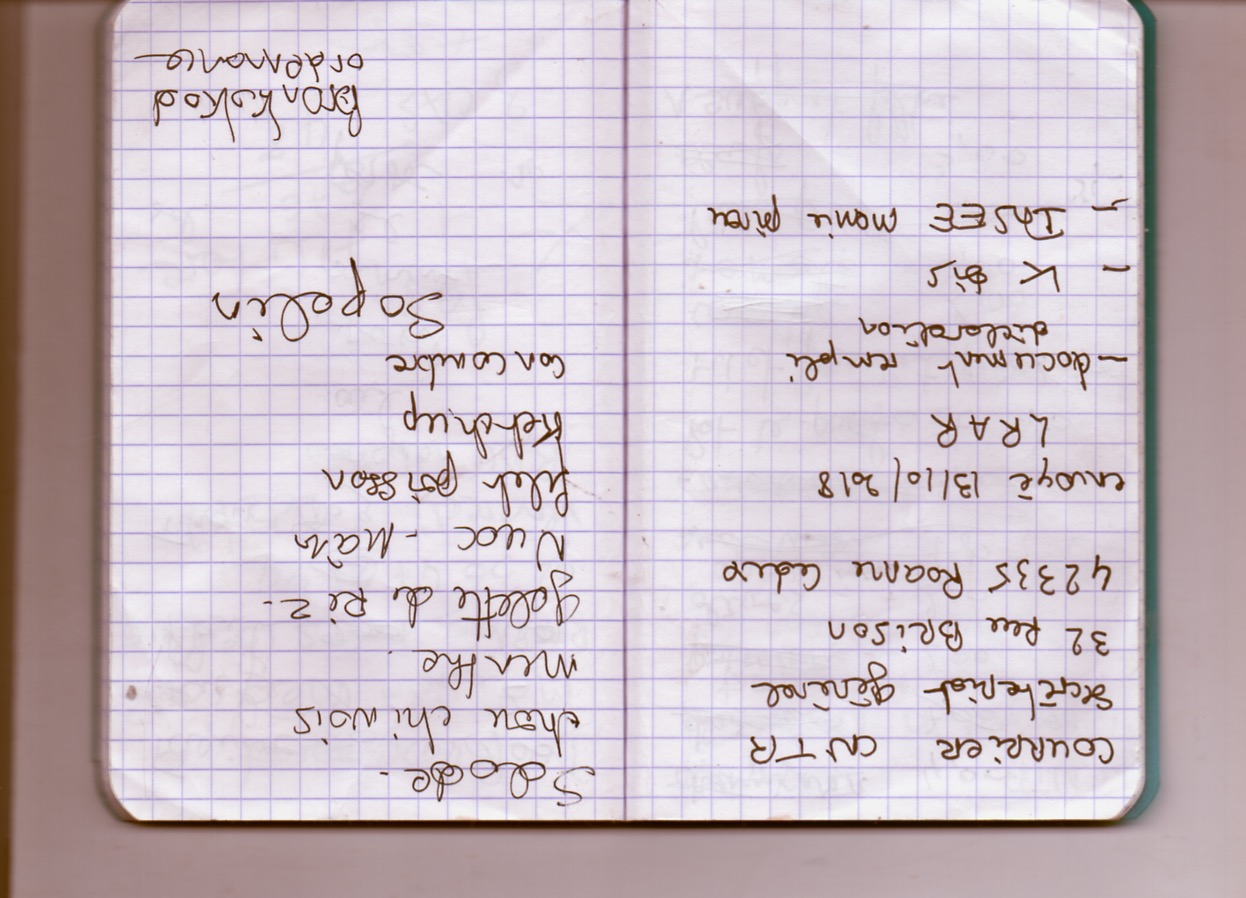 COURRIER CNTR
Secrétariat général
32 Rue BRISON
42335 Roanne Cedex
envoyé 13/10/2018
LRAR
- document rempli
déclaration
- K Bis
- INSEE
Salade.
chou chinois
menthe.
galette de Riz.
Nuoc-Mâm
filet poisson
Ketchup
concombre
Sopalin
Bronkokod
ordonnance